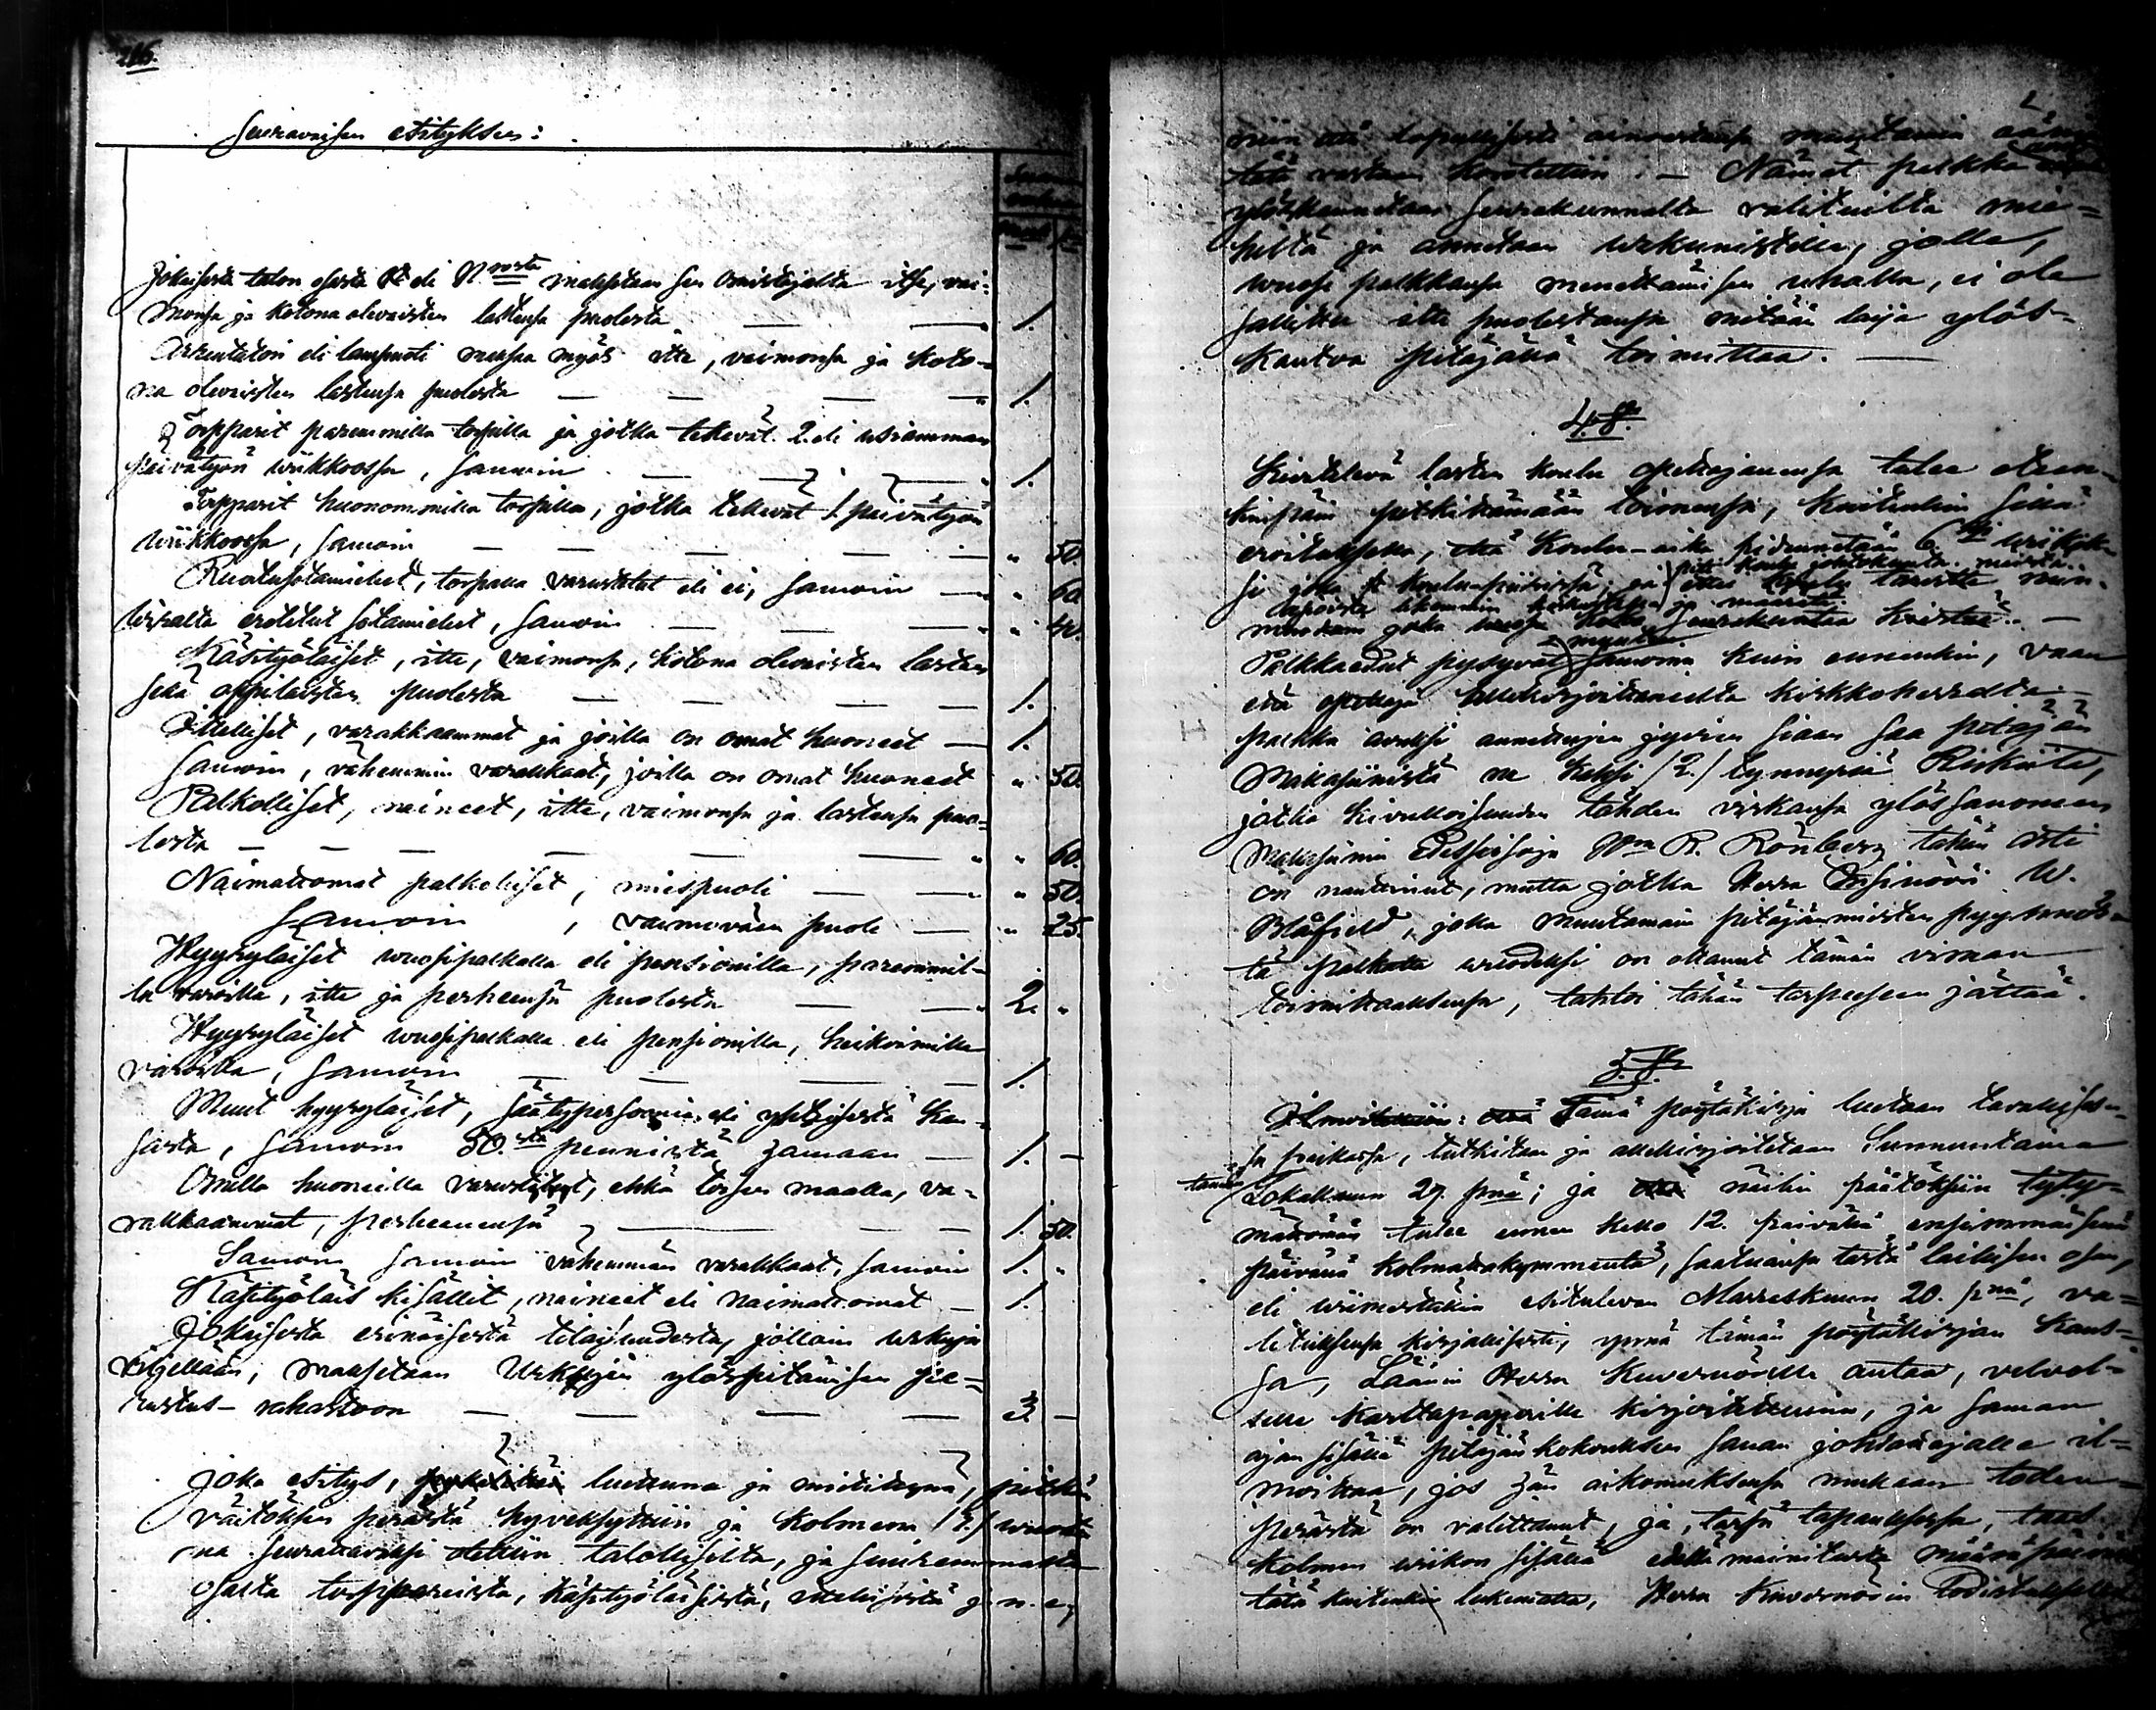 216.
seuraavaisen esityksen:
Suomen
Mark p:
Jokaisesta talon osasta eli N:rosta maksetaan sen omistajalta itse, vai-
monsa ja kotona olevaisten lastensa puolesta — — 1.
Arentatori eli lampuoti maksaa myös itte, vaimonsa ja koto-
na olevaisten lastensa puolesta — — — — 1.
Torpparit paremmilla torpilla ja jotka tekevät 2. eli usiamman
päivätyön wiikkoossa, samoin — — — 1.
Torpparit huonommilla torpilla, jotka tekevät 1. päivätyön
wiikkoossa, samoin — — — — — " 50.
Ruotusotamiehet, torpalla varustetut eli ei, samoin — " 60
Virvalta erotetut sotamiehet, samoin — — — " 40.
Käsityöläiset, itte, vaimonsa, kotona olevaisten lasten
sekä oppilaisten puolesta — — — — 1.
Itselliset, varakkaammat ja joilla on omat huoneet — 1.
Samoin, vähemmin varakkaat, joilla on omat huoneet " 50.
Palkolliset, naineet, itte, vaimonsa ja lastensa puo-
lesta — — — — — — " 60.
Naimattomat palkoliset, miespuoli — — " 50.
Samoin, vaimoväen puoli — " 25.
Hyyryläiset wuosipalkalla eli pensionilla, paremmil-
la varoilla, itte ja perheensä puolesta — — 2. "
Hyyryläiset wuosipalkalla eli pensionilla, heikoimilla
varoilla, samoin — — — — 1.
Muut hyyryläiset, säätypersoonia eli yhteisestä kan-
sasta, samoin 50:stä pennistä zamaan — 1. -
Omilla huoneilla varustetut, ehkä torpan maalla, va-
rakkaammat, perheenensä — — — 1. 50.
Samoin samoin vähemmän varakkaat, samoin 1. "
Käsityöläis kisällit, naineet eli naimattomat — 1.
Jokaisesta erinäisestä tilaisuudesta, jolloin urkuja
käytellään, maksetaan Urkujen ylöspitämisen pe-
rustus-rahastoon — — — — 3. —
joka esitys, luettuna ja mietittynä, pitkän
väitöksen perästä hyveksyttiin ja kolmena /3./ wuonna
na seurattavaksi otettiin talollisilta, ja suuremmalta
osalta torppareista, käsityöläisistä, itellisistä j. n. e.,
niin että lopullisesti ainoastansa muutamia ääniä
tätä vastaan korotettiin. — Nämät palkka
ylöskannetaan seurakunnalta valituilta mie-
hiltä ja annetaan urkunistille, jolla,
wuosi palkkansa menettämisen uhalla, ei ole
sallittu itte puolestansa mitään laija ylös-
kantoa pitäjällä toimittaa. —
4. §.
Kiertelevä lasten koulu opettajanensa tulee eteen-
kinpäin pitkittämään toimensa, kuitenkin sillä
eroituksella, että koulu-aika pidennetään 6:ksi wiikok-
si joka koulu-piirissä; ja
seurakuntaa kiertää. —
Palkkaedut pysyvät muutoin samoina kuin ennenkin, vaan
että opettaja allekirjoittaneelta kirkkoherralta
palkka avuksi annettujen jyvien siaan saa pitäjän
Makasiinista ne kaksi /2./ tynnyriä Rukiita,
jotka kivulloisuuden tähden virkansa ylössanomeen
Makasiinin Esiseisoja H:ra R. Rönberg tähän asti
on nauttinut, mutta jotka Herra Insinööri W.
Blåfield, joka muutamain pitäjänmiesten pyynnös-
tä palkatta wuodeksi on ottanut tämän viran
toimittaaksensa, tahtoi tähän tarpeeseen jättää.
5. §.
Ilmoitettiin: Tämä pöytäkirja luetaan tavallises-
sa paikassa, tutkitaan ja allekirjoitetaan Sunnuntaina
tämän Lokakuun 29. p:nä; ja näihin päätöksiin tyty-
mättömän tulee ennen kello 12. päivällä ensimmäisenä
päivänä kolmattakymmentä, saatuansa tästä laillisen osan,
eli wiimeistäkin esitulevan Marraskuun 20. p:nä, va-
lituksensa kirjallisesti, ynnä tämän pöytäkirjan kans-
sa, Läänin Herra Kuvernöörille antaa, velvol-
selle karttapaperille kirjoitettuina, ja saman
ajan sisällä pitäjänkokouksen sanan johtaajalle il-
moittaa, jos hän aikomuksensa mukaan toden-
perästä on valittanut, ja, tässä tapauksessa, taas
kolmen wiikon sisällä edellämainitusta määräpäivästä
tätä kuitenkin lukematta, Herra Kuvernöörin Todistuksella